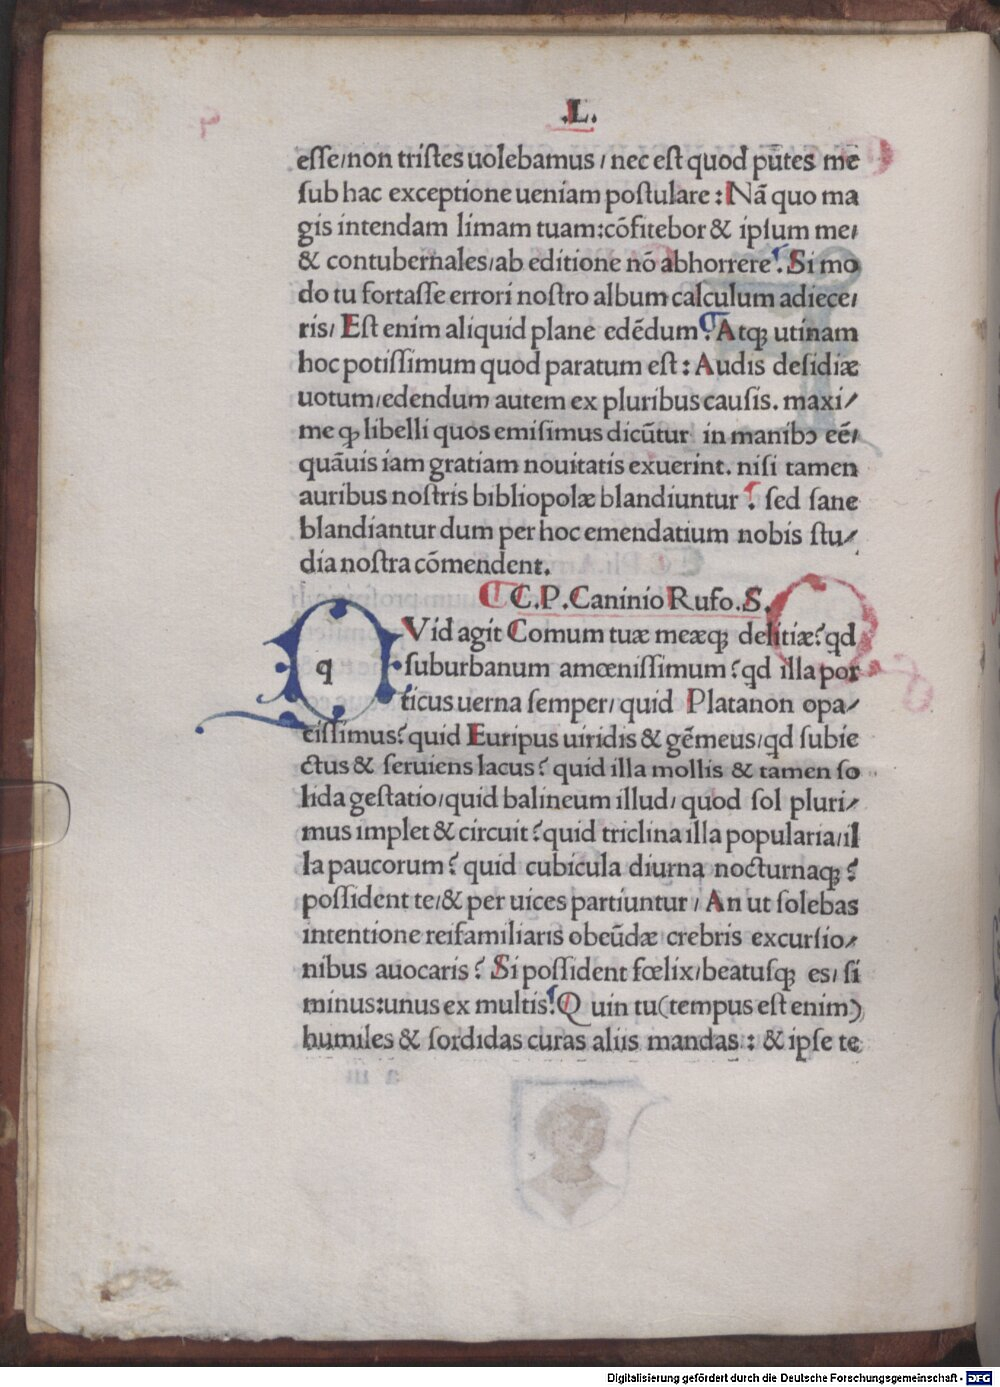 .L.
esse/non tristes uolebamus / nec est quod pūtes me
sub hac exceptione ueniam postulare : Nā quo ma
gis intendam limam tuam:cōfitebor & ipsum me/
& contubernales/ab editione nō abhorrere . Si mo
do tu fortasse errori nostro album calculum adiece/
ris/ Est enim aliquid plane edēdum . Atqꝫ utinam
hoc potissimum quod paratum est : Audis desidiæ
uotum/edendum autem ex pluribus causis. maxi/
me qꝫ libelli quos emisimus dicūtur in manibꝰ eē/
quāuis iam gratiam nouitatis exuerint. nisi tamen
auribus nostris bibliopolæ blandiuntur . sed sane
blandiantur dum per hoc emendatium nobis stu/
dia nostra cōmendent.
C.P.Caninio Rufo.S.
q
QVid agit Comum tuæ meæqꝫ delitiæ? qd
suburbanum amœnissimum? qd illa por
ticus uerna semper/ quid Platanon opa/
cissimus? quid Euripus uiridis & gēmeus/qd subie
ctus & seruiens lacus? quid illa mollis & tamen so
lida gestatio/quid balineum illud/ quod sol pluri/
mus implet & circuit? quid triclina illa popularia/il
la paucorum? quid cubicula diurna nocturnaqꝫ ?
possident te/& per uices partiuntur / An ut solebas
intentione reifamiliaris obeūdæ crebris excursio/
nibus auocaris? Si possident fœlix/beatusqꝫ es/ si
minus:unus ex multis. Quin tu(tempus est enim)
humiles & sordidas curas aliis mandas : & ipse te
Digitalisierung gefördert durch die Deutsche Forschungsgemeinschaft - DFG